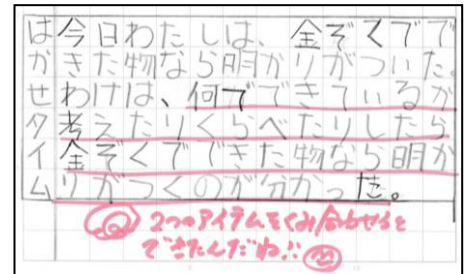 はかせタイム
今日わたしは、金ぞくでで
きた物なら明かりがついた。
わけは、何でできているか
考えたりくらべたりしたら
金ぞくでできた物なら明か
りがつくのが分かった。
2つのアイテムをくみ合わせると
できたんだね!!